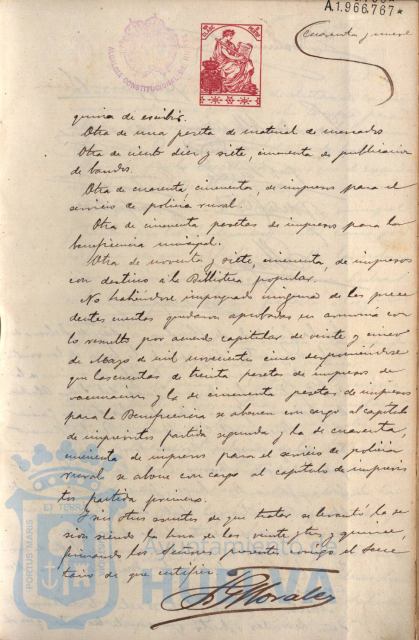 A.1.966,767*
Cuarenta y nueve
ALCALDIA CONSTITUCIONAL DE HUELVA
quina de escribir.
Otra de una peseta de material de mercados
Otra de ciento diez y siete, cincuenta de publicacion
de bandos.
Otra de cuarenta, cincuenta, de impresos para el
servicio de policia rural.
Otra de cincuenta pesetas de impresos para la
beneficencia municipal.
Otra de noventa y siete, cincuenta, de impresos
con destino á la Biblioteca popular.
No habiendose impugnado ninguna de las prece
dentes cuentas quedaron aprobadas en armonia con
lo resuelto por acuerdo capitular de veinte y cinco
de Mayo de mil novecientos cinco disponiendose
que las cuentas de treinta pesetas de impresos de
vacunacion y la de cincuenta pesetas de impresos
para la Beneficencia se abonen con cargo al capitulo
de imprevistos partida segunda y la de cuarenta,
cincuenta de impresos para el servicio de policia
rural se abone con cargo al capitulo de imprevis
tos partida primera.
Y sin otros asuntos de que tratar se levantó la se
sion siendo la hora de las veinte y tres y quince,
firmando los Señores presentes conmigo el Secre
tario de que certifico.
Morales
PORTUS MARIS ET TERRAE
Ayuntamiento de
HUELVA